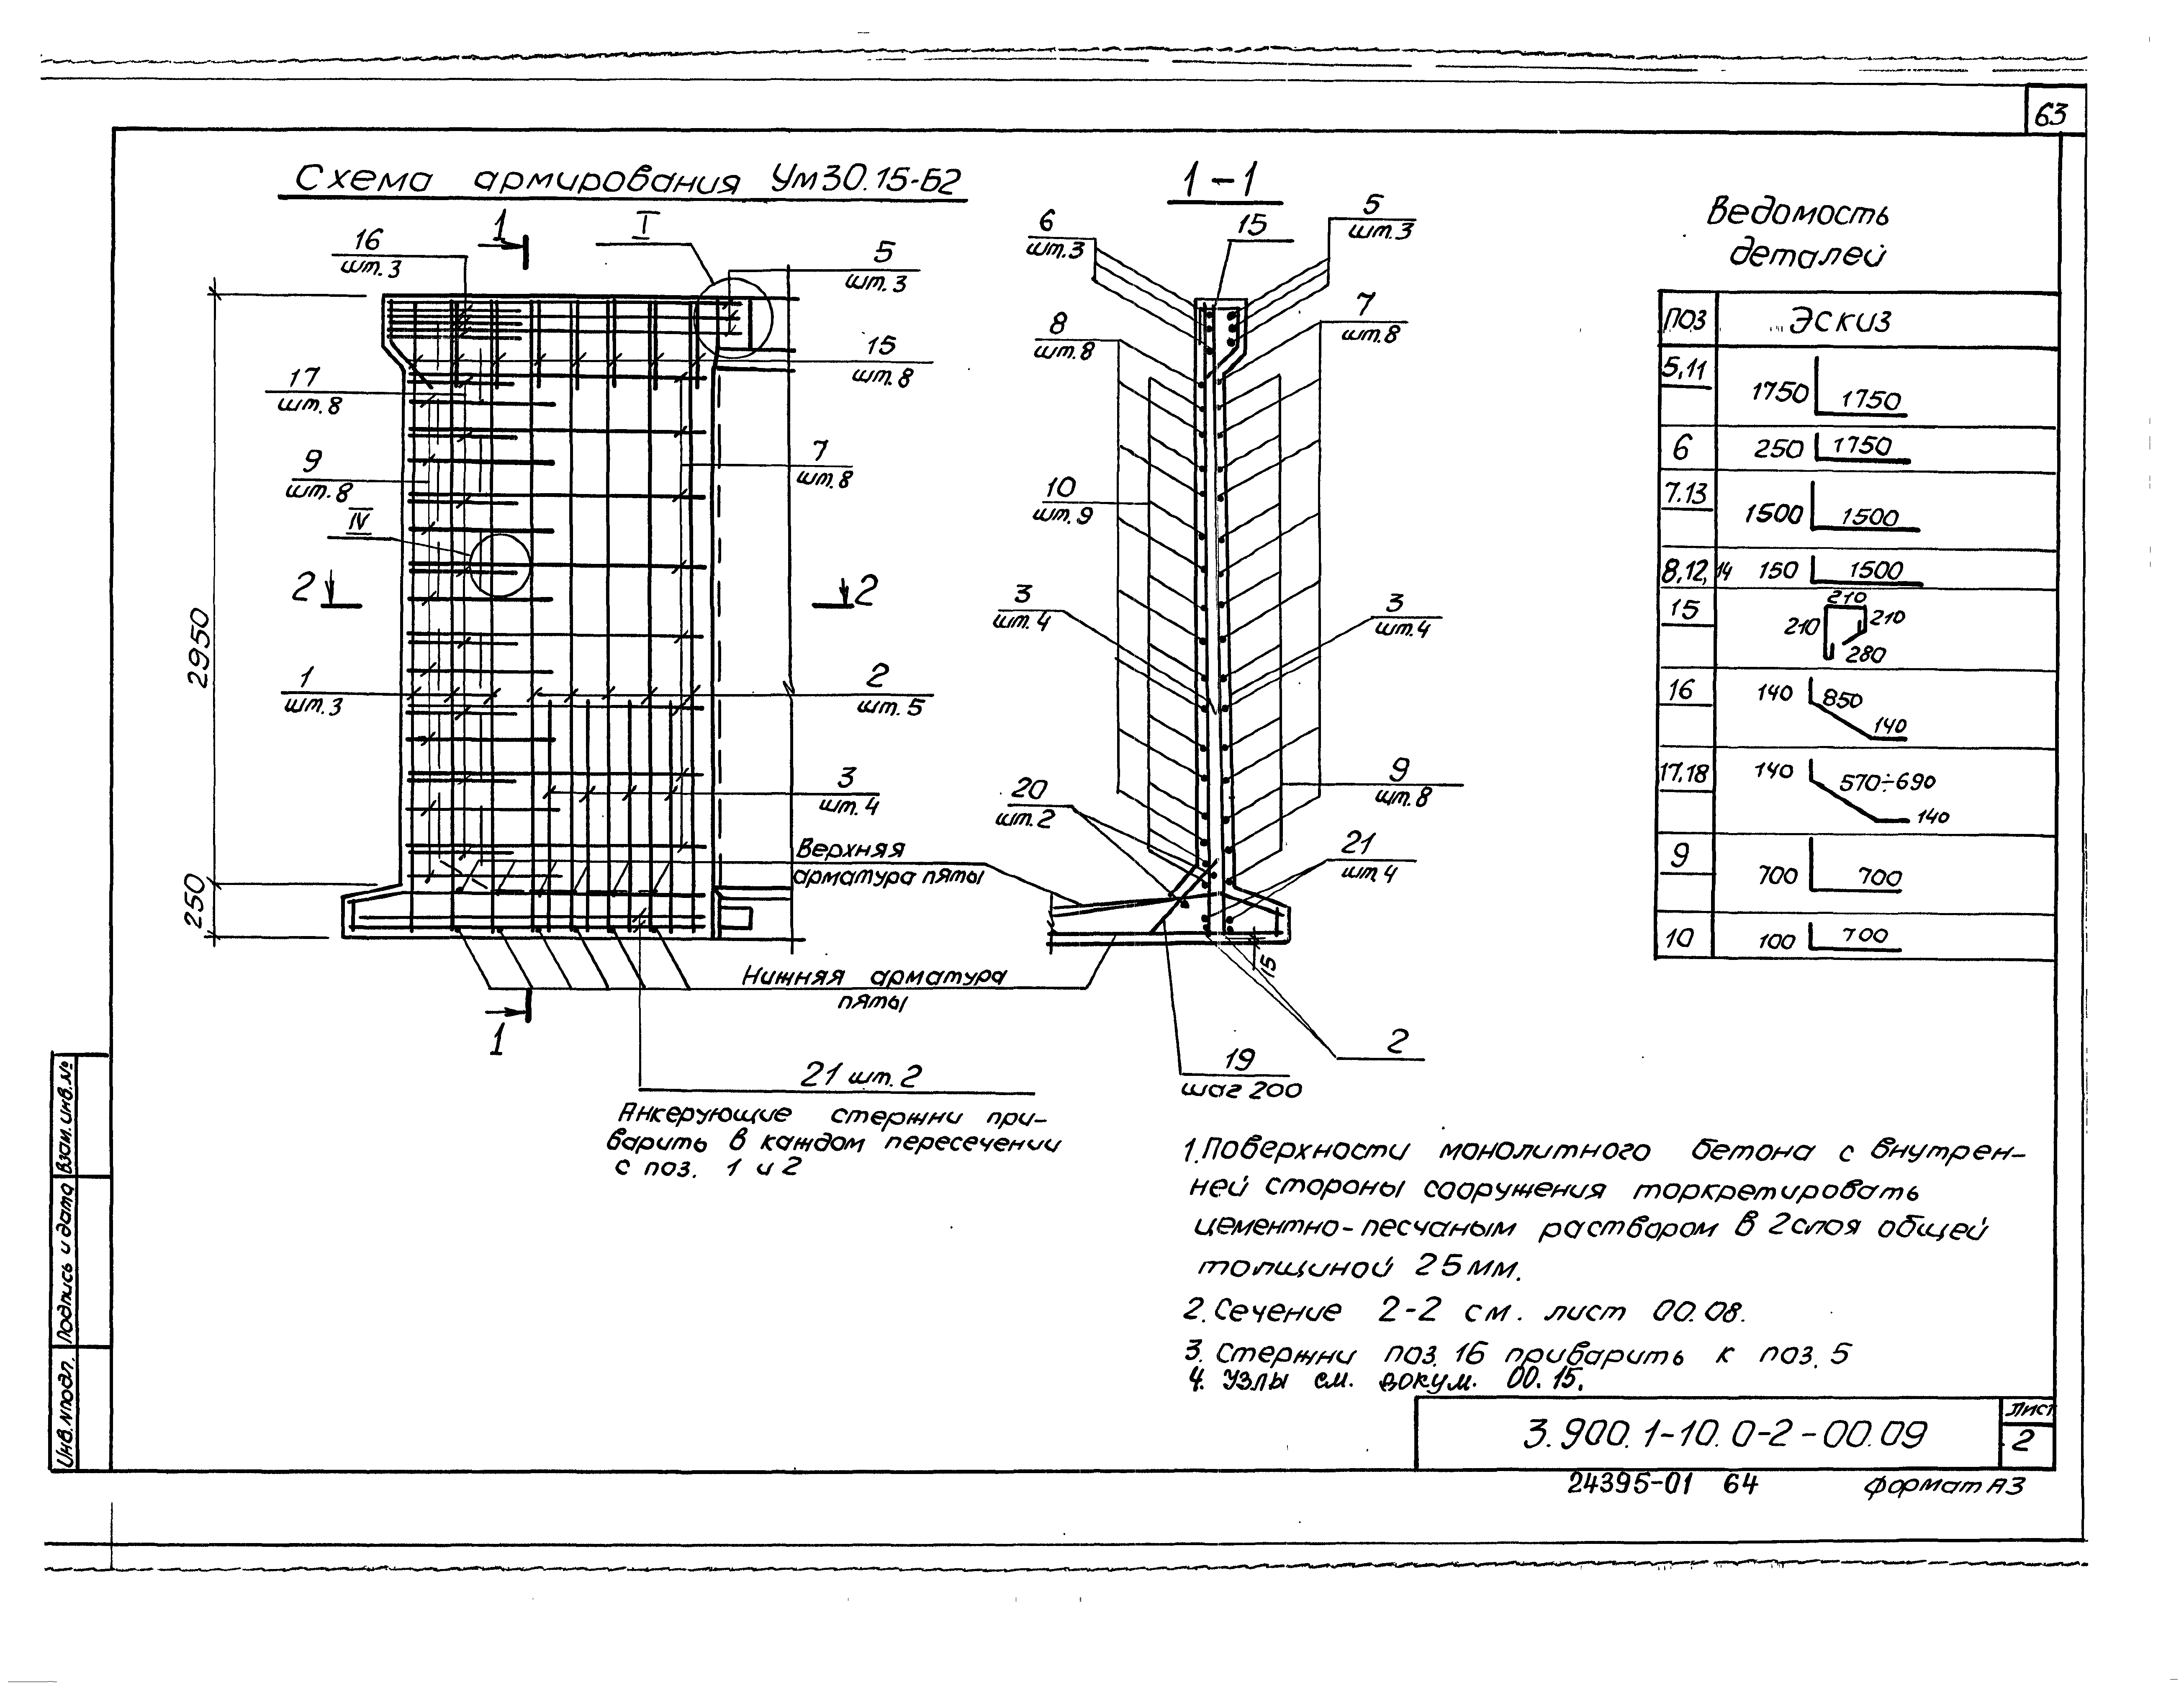 63
Схема армирования Ум30.15-Б2
1
I
16
шт.3
5
шт.3
15
шт.8
17
шт.8
9
шт.8
7
шт.8
IV
2
2
2950
1
шт.3
2
шт.5
3
шт.4
Верхняя
арматура пяты
250
Нижняя арматура
пяты
1
21 шт.2
Анкерующие стержни при-
варить в каждом пересечении
с поз. 1 и 2
1-1
6
шт.3
15
5
шт.3
8
шт.8
7
шт.8
10
шт.9
3
шт.4
3
шт.4
20
шт.2
9
шт.8
21
шт.4
15
2
19
шаг 200
Ведомость
деталей
поз Эскиз
5,11 1750 1750
6 250 1750
7.13 1500 1500
8,12,14 150 1500
15 210 210 210 280
16 140 850 140
17,18 140 570÷690 140
9 700 700
10 100 700
1.Поверхности монолитного бетона с внутрен-
ней стороны сооружения торкретировать
цементно-песчаным раствором в 2 слоя общей
толщиной 25мм.
2.Сечение 2-2 см. лист 00.08.
3. Стержни поз. 16 приварить к поз. 5
4. Узлы см. докум. 00.15.
3.900.1-10.0-2-00.09
Лист
2
24395-01 64 формат А3
Инв.№подл. Подпись и дата Взам.инв.№